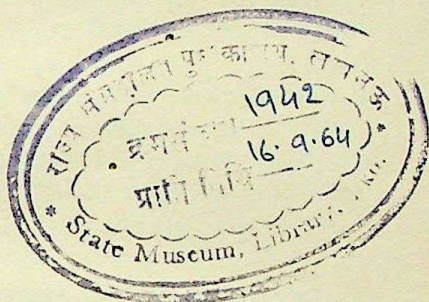 राज्य संग्रहालय पुस्तकालय, लखनऊ
क्रमसंख्या 1942
प्राप्ति तिथि 16.9.64
* State Museum, Library, *